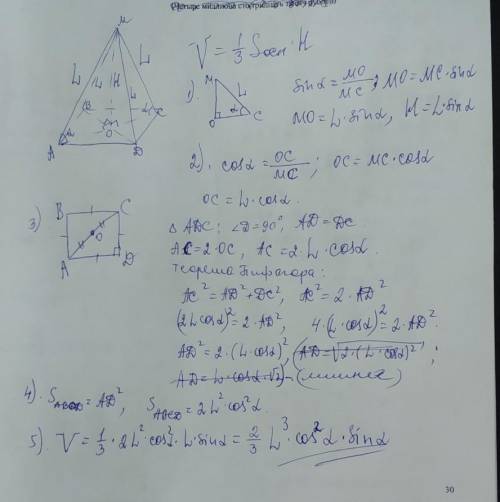 (Четыре миллиона
V = 1/3 Sосн · H
M
L L L H L
B C α
A α O D
1). M L O α C
sin α = MO/MC ; MO = MC · sin α
MO = L · sin α, H = L · sin α
2). cos α = OC/MC ; OC = MC · cos α
OC = L · cos α.
3) B C O A D
△ ADC; ∠D = 90°, AD = DC
AC = 2 · OC, AC = 2 · L · cos α.
Теорема Пифагора:
AC² = AD² + DC², AC² = 2 · AD²
(2L cos α)² = 2 · AD², 4 · (L · cos α)² = 2 · AD².
AD² = 2 · (L · cos α)², (AD = √2 · (L · cos α)² ;
AD = L · cos α · √2) - (лишнее)
4). SABCD = AD², SABCD = 2L² · cos² α.
5). V = 1/3 · 2L² · cos² α · L · sin α = 2/3 L³ · cos² α · sin α
30